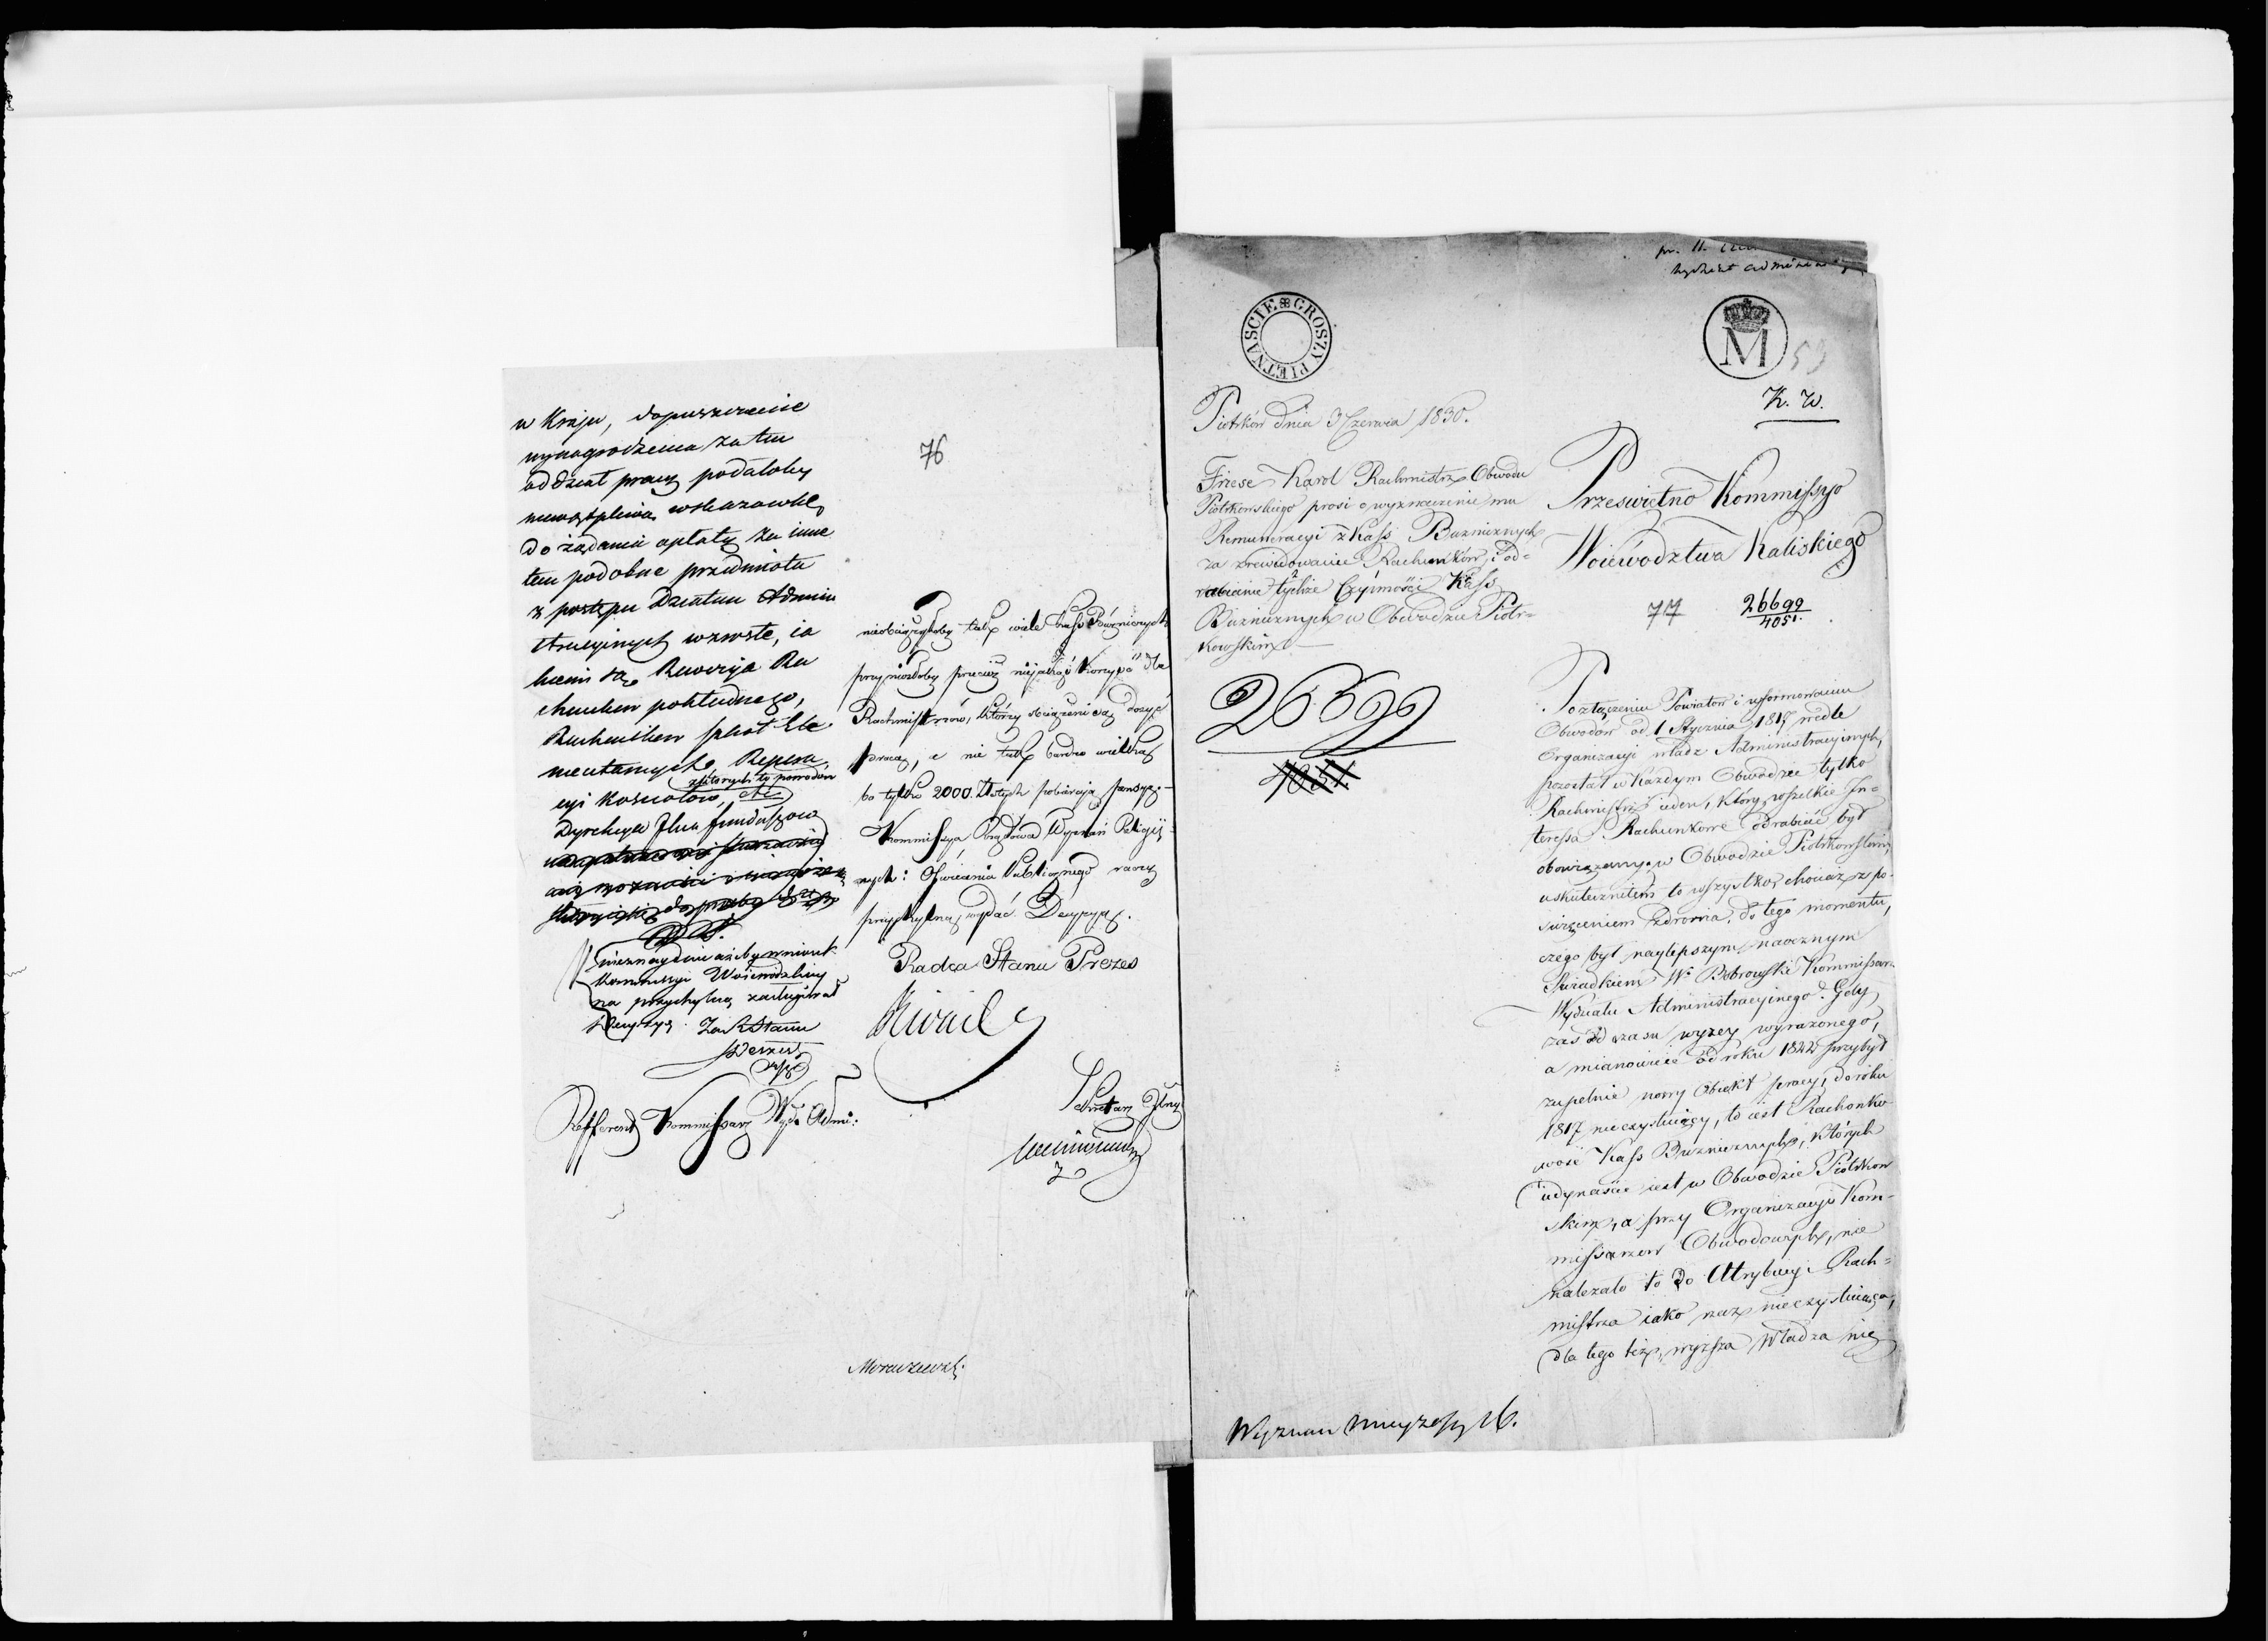 w Kraju, dopuszczenie
wynagrodzenia za ten
oddział pracy podałoby
niewątpliwą wskazówkę
do żądania opłaty za inne
tem podobne przedmiota
z postępu Działań Admini
stracyinych wzrosłe, ia
kiemi są Rewizya Ra
chunków pokładnego,
Rachunków składek Ele
mentarnych, Repera
cyi Kościołów,
z których to powodów
Dyrekcya Jlna funduszów
nieznayduie ażeby wniosek
Kommissyi Woiewódzkiey
na przychylną zasługiwał
Decyzyą. Za R Stanu
Refferent Kommissarz Wydz. Admi:
76
nieobciążyłoby tak wiele kass Bóżniczych
przyniosłoby przecież niejakąś korzyść dla
Rachmistrzów, którzy obciążeni są dosyć
pracą, a nie tak bardzo wielką
bo tylko 2000 Złotych pobierają pensyą.
Kommissya Rządowa Wyznań Religij
nych i Oświecenia Publicznego raczy
przychylną wydać Decyzyą.
Radca Stanu Prezes
Sekretarz Jlny
Moraczewski
pr. 11.
GROSZY PIĘTNAŚCIE
M
59
K. W.
Piotrków dnia 3 Czerwca 1830.
Friese Karol Rachmistrz Obwodu
Piotrkowskiego prosi o wyznaczenie mu
Remuneracyi z Kass Buznicznych
za zrewidowanie Rachunków, i od=
rabianie tychże Czynności Kass
Buznicznych w Obwodzie Piotr=
kowskim
26699
4051
Prześwietno Kommissyo
Woiewództwa Kaliskiego
77
26699
4051.
Po złączeniu Powiatów i uformowaniu
Obwodów od 1 Stycznia 1817 wedle
Organizacyi władz Administracyinych,
pozostał w każdym Obwodzie tylko
Rachmistrz ieden, który wszelkie In=
teressa Rachunkowe odrabiać był
obowiązany; w Obwodzie Piotrkowskim
uskuteczniłem to wszystko, chociaż z po=
święceniem zdrowia, do tego momentu,
czego był naylepszym naocznym
Świadkiem Wy Bobrowski Kommissarz
Wydziału Administracyinego. Gdy
zaś od czasu wyżey wyrażonego,
a mianowicie od roku 1822 przybył
zupełnie nowy Obiekt pracy, do roku
1817 nieexystuiący, to iest Rachonko=
wość Kass Buznicznych, których
iedynaście iest w Obwodzie Piotrkow
skim, a przy Organizacyi Kom=
missarzów Obwodowych, nie
należało to do Attrybucyi Rach=
mistrza iako rzecz nieexystuiąca,
dla tego też, wyższa Władza nie